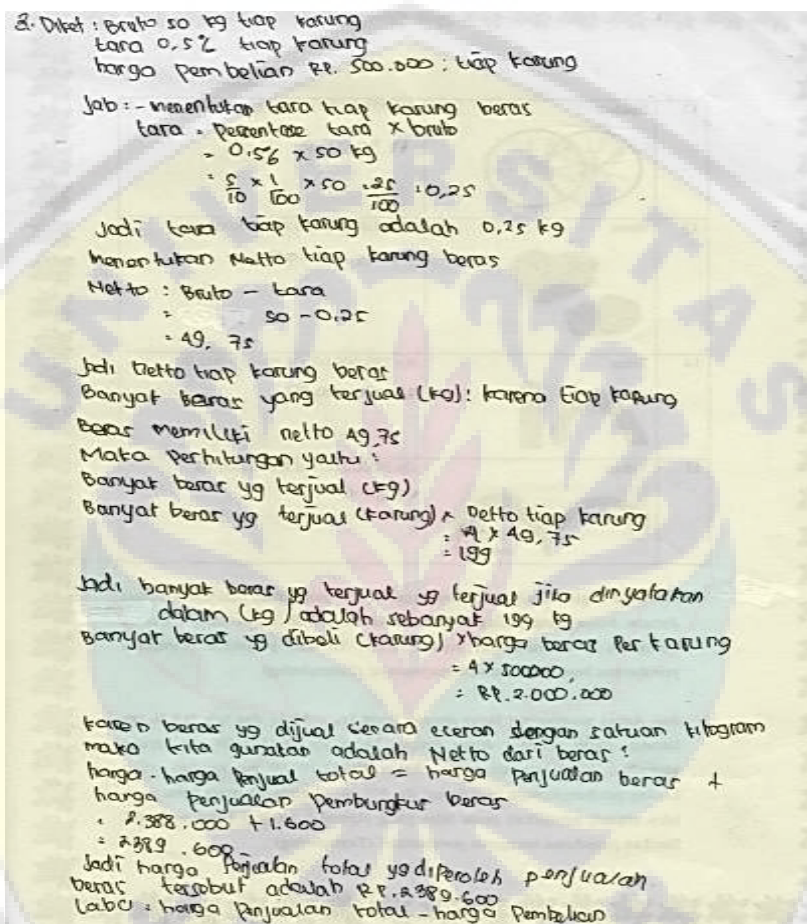 2. Diket : Bruto 50 kg tiap karung
tara 0,5% tiap karung
harga Pembelian RP. 500.000 : tiap karung
Jab : - menentukan tara tiap karung beras
tara = Persentase tara x bruto
= 0.5% x 50 kg
= 5/10 x 1/100 x 50 = 25/100 : 0,25
Jadi tara tiap karung adalah 0,25 kg
menentukan Netto tiap karung beras
Netto : Bruto - tara
= 50 - 0.25
= 49, 75
Jadi netto tiap karung beras
Banyak beras yang terjual (kg) : karena tiap karung
Beras memiliki netto 49,75
Maka Perhitungan yaitu :
Banyak beras yg terjual (kg)
Banyak beras yg terjual (karung) x netto tiap karung
= 4 x 49,75
= 199
Jadi banyak beras yg terjual yg terjual jika dinyatakan
dalam (kg) adalah sebanyak 199 kg
Banyak beras yg dibeli (karung) x harga beras Per karung
= 4 x 500000,
= RP. 2.000.000
karen beras yg dijual secara eceran dengan satuan kilogram
maka kita gunakan adalah Netto dari beras :
harga - harga Penjual total = harga Penjualan beras +
harga Penjualan Pembungkus beras
= 2.388.000 + 1.600
= 2389.600
Jadi harga Penjualan total yg diperoleh penjualan
beras tersebut adalah RP. 2389.600
Laba : harga Penjualan total - harga Pembelian
UNIVERSITAS